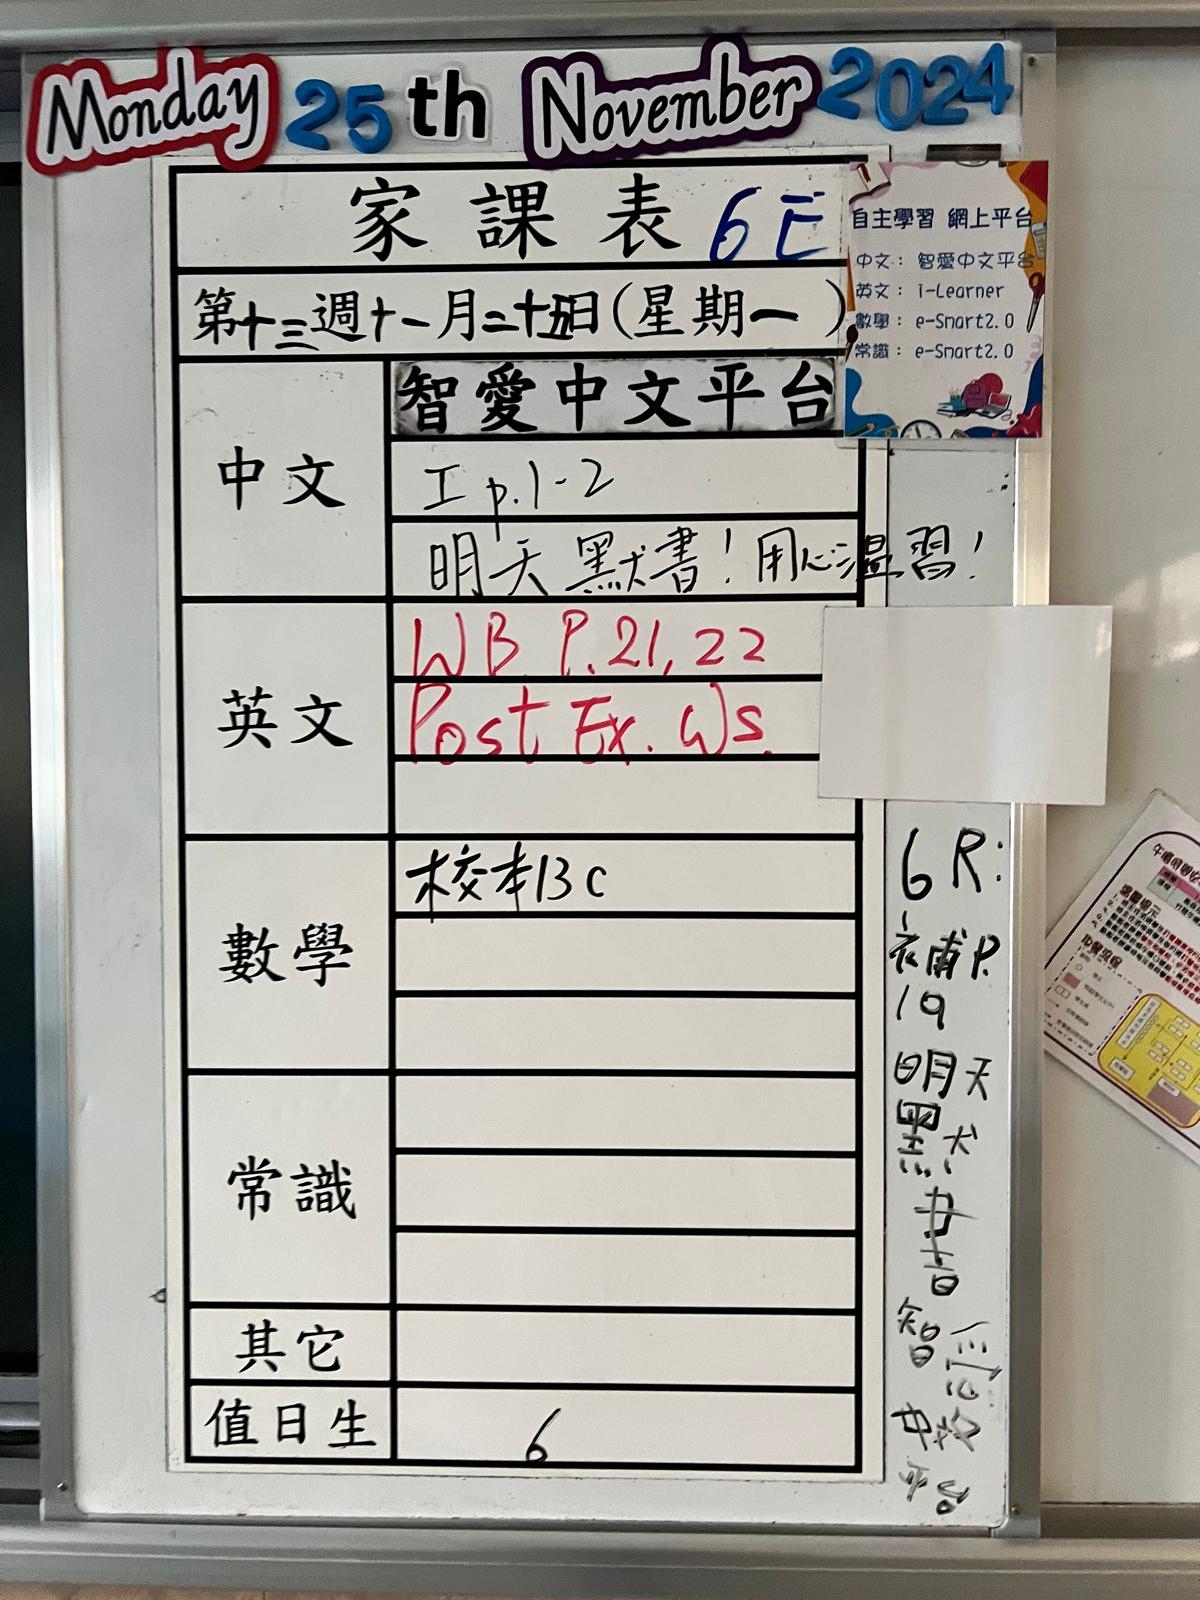 Monday 25th November 2024
家課表 6E
第十三週十一月二十五日(星期一)
自主學習 網上平台
中文： 智愛中文平台
英文： i-Learner
數學： e-Smart2.0
常識： e-Smart2.0
中文
智愛中文平台
工 p.1-2
明天默書！用心溫習！
英文
WB P.21,22
Post Ex. Ws.
數學
校本13c
常識
其它
值日生
6
6R:
補P.
19
明天
默
書
智愛
中文
平台